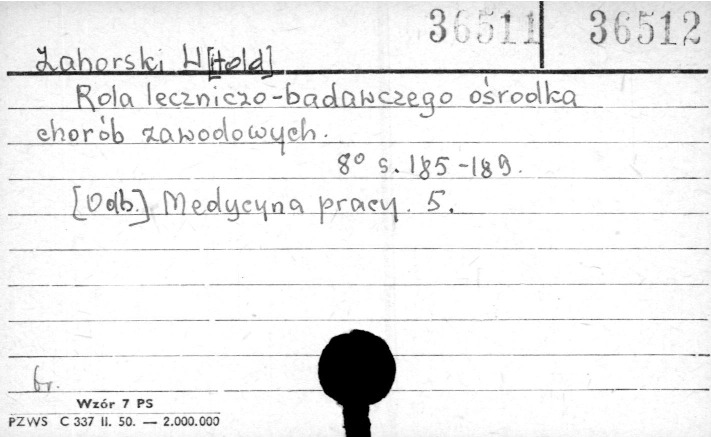 36511 36512
Zahorski W[itold]
Rola leczniczo-badawczego ośrodka
chorób zawodowych.
8° s. 185-189.
[Odb.] Medycyna pracy. 5.
br.
Wzór 7 PS
PZWS C 337 II. 50. — 2.000.000